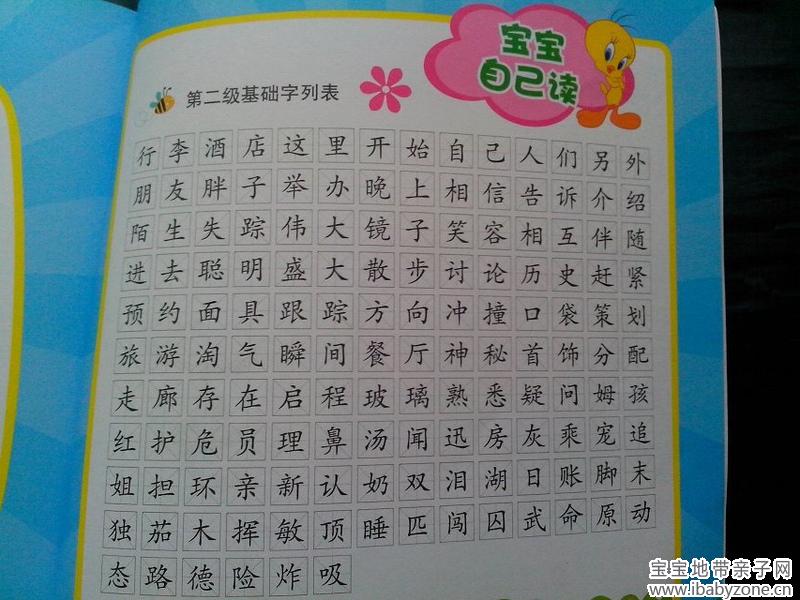 宝宝
自己读
第二级基础字列表
行李酒店这里开始自己人们另外
朋友胖子举办晚上相信告诉介绍
陌生失踪伟大镜子笑容相互伴随
进去聪明盛大散步讨论历史赶紧
预约面具跟踪方向冲撞口袋策划
旅游淘气瞬间餐厅神秘首饰分配
走廊存在启程玻璃熟悉疑问姆孩
红护危员理鼻汤闻迅房灰乘宠追
姐担环亲新认奶双泪湖日账脚末
独茄木挥敏顶睡匹闯囚武命原动
态路德险炸吸
宝宝地带亲子网
www.ibabyzone.cn